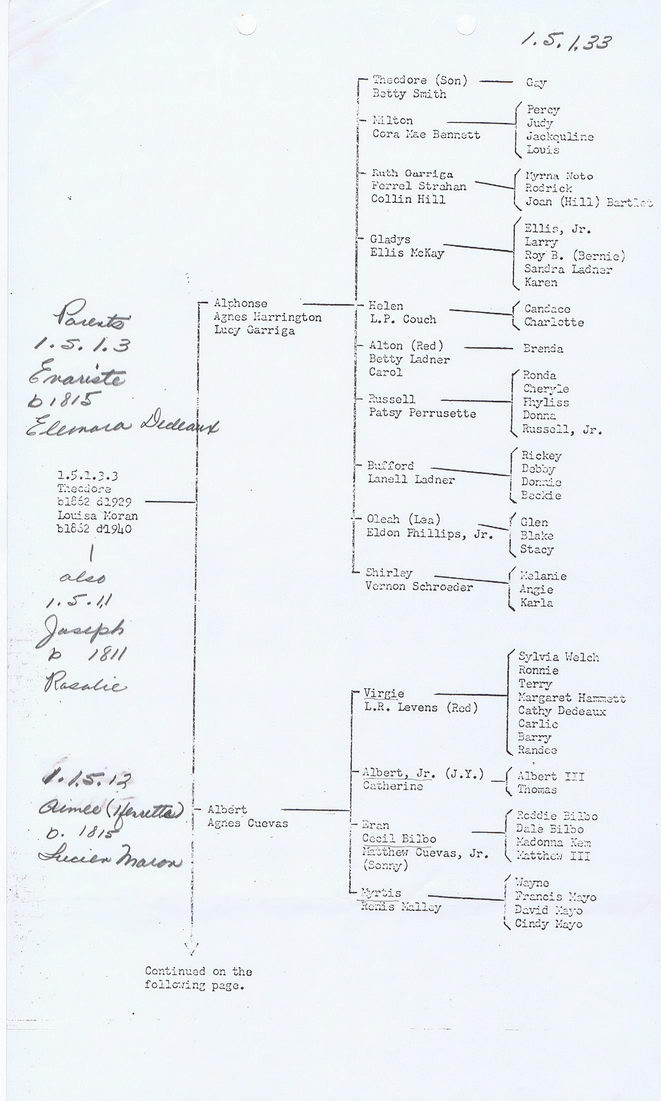 1.5.1.33
Theodore (Son)
Betty Smith
Gay
Milton
Cora Mae Bennett
Percy
Judy
Jackquline
Louis
Ruth Garriga
Ferrel Strahan
Collin Hill
Myrna Noto
Rodrick
Joan (Hill) Bartlet
Gladys
Ellis McKay
Ellis, Jr.
Larry
Roy B. (Bernie)
Sandra Ladner
Karen
Alphonse
Agnes Harrington
Lucy Garriga
Helen
L.P. Couch
Candace
Charlotte
Alton (Red)
Betty Ladner
Carol
Brenda
Russell
Patsy Perrusette
Ronda
Cheryle
Phyliss
Donna
Russell, Jr.
Parents
1.5.1.3
Evariste
b 1815
Elenora Dedeaux
Bufford
Lanell Ladner
Rickey
Debby
Donnie
Beckie
1.5.1.3.3
Theodore
b1862 d1929
Louisa Moran
b1862 d1940
Oleah (Lea)
Eldon Phillips, Jr.
Glen
Blake
Stacy
Shirley
Vernon Schroeder
Melanie
Angie
Karla
also
1.5.11
Joseph
b 1811
Rosalie
Virgie
L.R. Levens (Red)
Sylvia Welch
Ronnie
Terry
Margaret Hammett
Cathy Dedeaux
Carlie
Barry
Randee
Albert, Jr. (J.Y.)
Catherine
Albert III
Thomas
1.1.5.12
Aimee
b. 1815
Lucien Moron
Albert
Agnes Cuevas
Eran
Cecil Bilbo
Matthew Cuevas, Jr.
(Sonny)
Reddie Bilbo
Dale Bilbo
Madonna Kem
Matthew III
Myrtis
Renis Malley
Wayne
Francis Mayo
David Mayo
Cindy Mayo
Continued on the
following page.